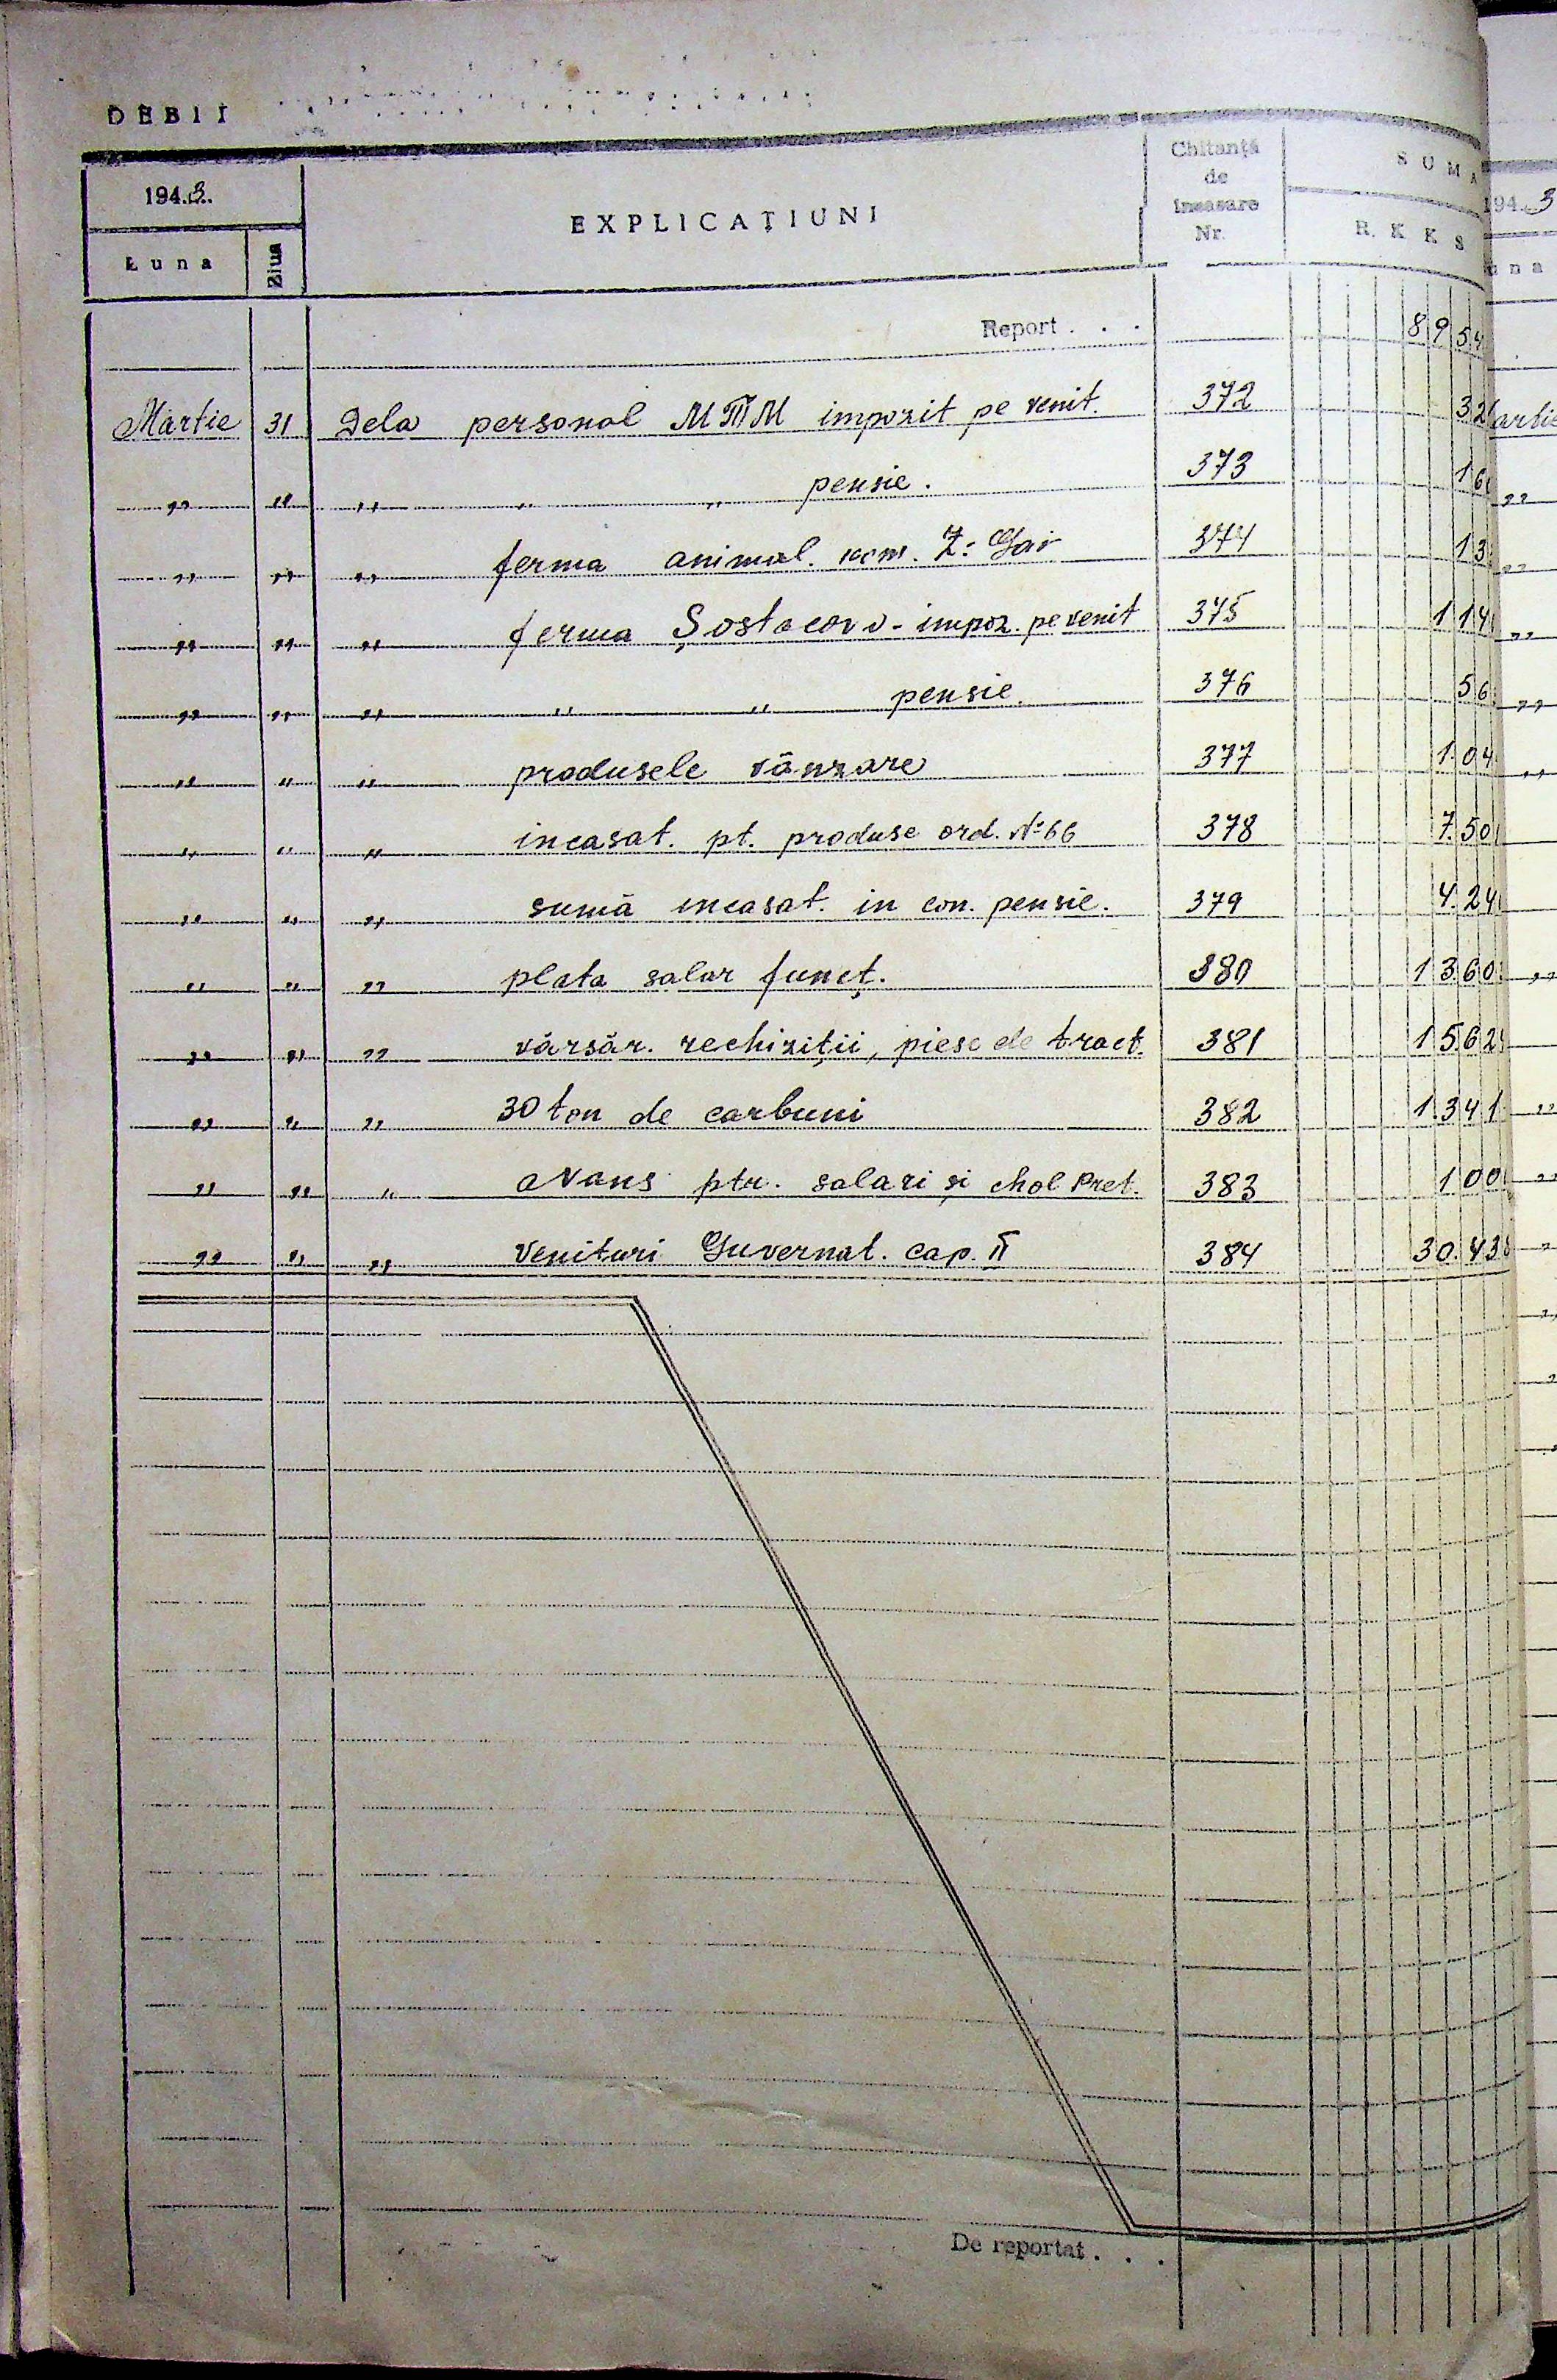 DEBIT
194.3..
Luna Ziua EXPLICAŢIUNI Chitanţă de încasare Nr. SOMA R. K. K. S
Report . . . 8954
Martie 31 Dela personal МТМ impozit pe venit. 372 32
„ „ „ „ „ pensie. 373 16
„ „ „ ferma animal. 374 13
„ „ „ ferma Șostacovo - impoz. pe venit 375 114
„ „ „ „ „ pensie. 376 56
„ „ „ produsele vânzare 377 1.04
„ „ „ incasat. pt. produse ord. № 66 378 7.50
„ „ „ sumă incasat. in con. pensie. 379 4.24
„ „ „ plata salar funcț. 380 1360
„ „ „ vărsăr. rechiziții, piese de tract. 381 1562
„ „ „ 30 ton de carbuni 382 1.341
„ „ „ avans ptr. salari și chel Pret. 383 100
„ „ „ venituri Guvernat. cap. II 384 30.43
De reportat . . .
194..3
una
artie